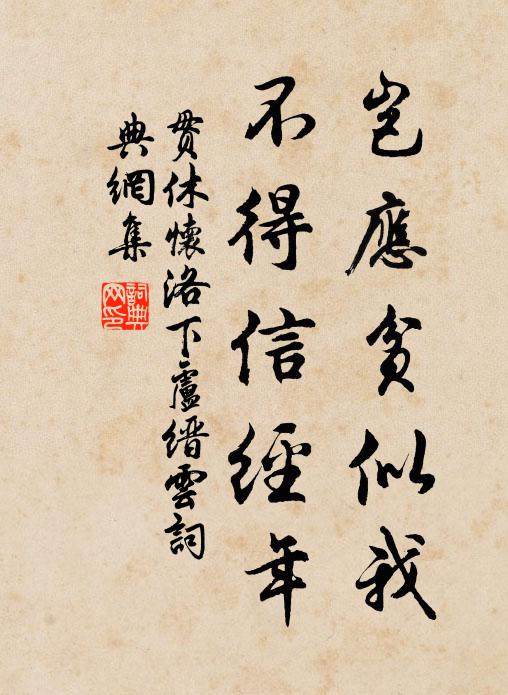 豈應貧似我
不得信經年
貫休懷洛下盧縉雲詞
典網集
詞典網印